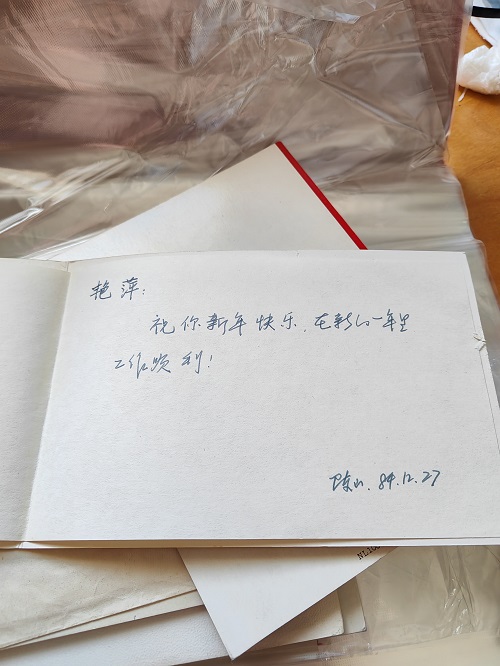 艳萍:
祝你新年快乐.在新的一年里
工作顺利!
山.84.12.27